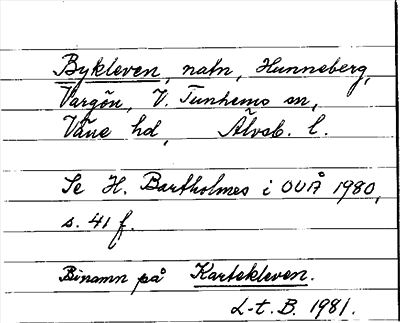 Bykleven, natn, Hunneberg,
Vargön, V. Tunhems sn,
Väne hd, Älvsb. l.
Se H. Bartholmes i OUÅ 1980,
s. 41 f.
Binamn på Kartekleven.
L-t. B. 1981.